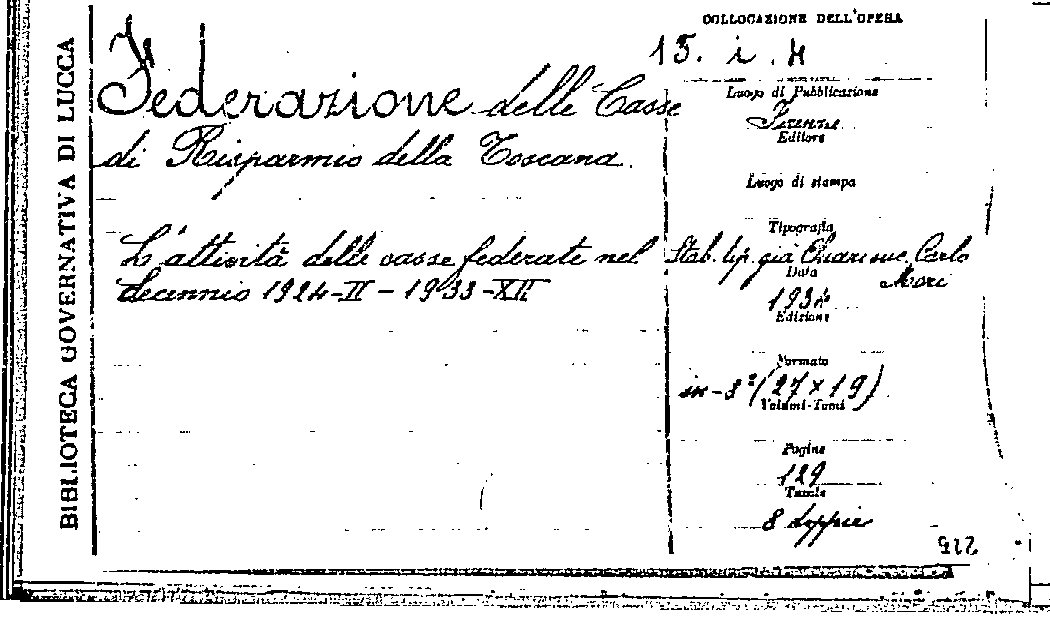 BIBLIOTECA GOVERNATIVA DI LUCCA
Federazione delle Casse
di Risparmio della Toscana.
L'attività delle casse federate nel
decennio 1924-II - 1933-XII
COLLOCAZIONE DELL'OPERA
15. i. 4
Luogo di Pubblicazione
Firenze
Editore
Luogo di stampa
Tipografia
Stab. tip. già Chiari succ. Carlo
Mori
Data
1934
Edizione
Formato
in-8° (27 x 19)
Volumi-Tomi
Pagine
129
Tavole
8 doppie